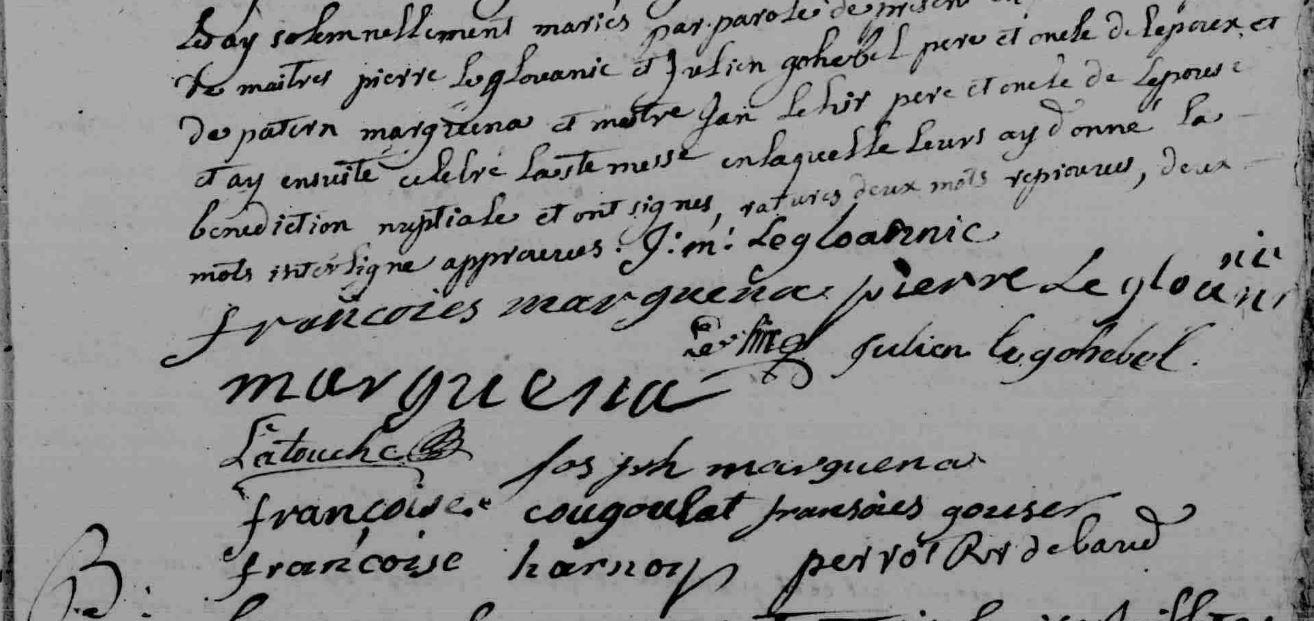 Les ay solemnellement mariés par parole de present en
de maitres pierre le glouanic et Julien gohebel pere et oncle de lepoux, et
de patern marguena et mestre Jan le hir pere et oncle de Lepouse
et ay ensuite celebré la ste messe en laquelle leurs ay donné la
benediction nuptiale et ont signes, ratures deux mots reprouves, deux
mots interligne approuves. J: m: Legloannic
françoies marguena pierre Le gloanic
julien le gohebel.
marguena
Latouche joseph marguena
françoise cougoulat fransoies gouser
françoise harnoy perrot Rr de baud
B